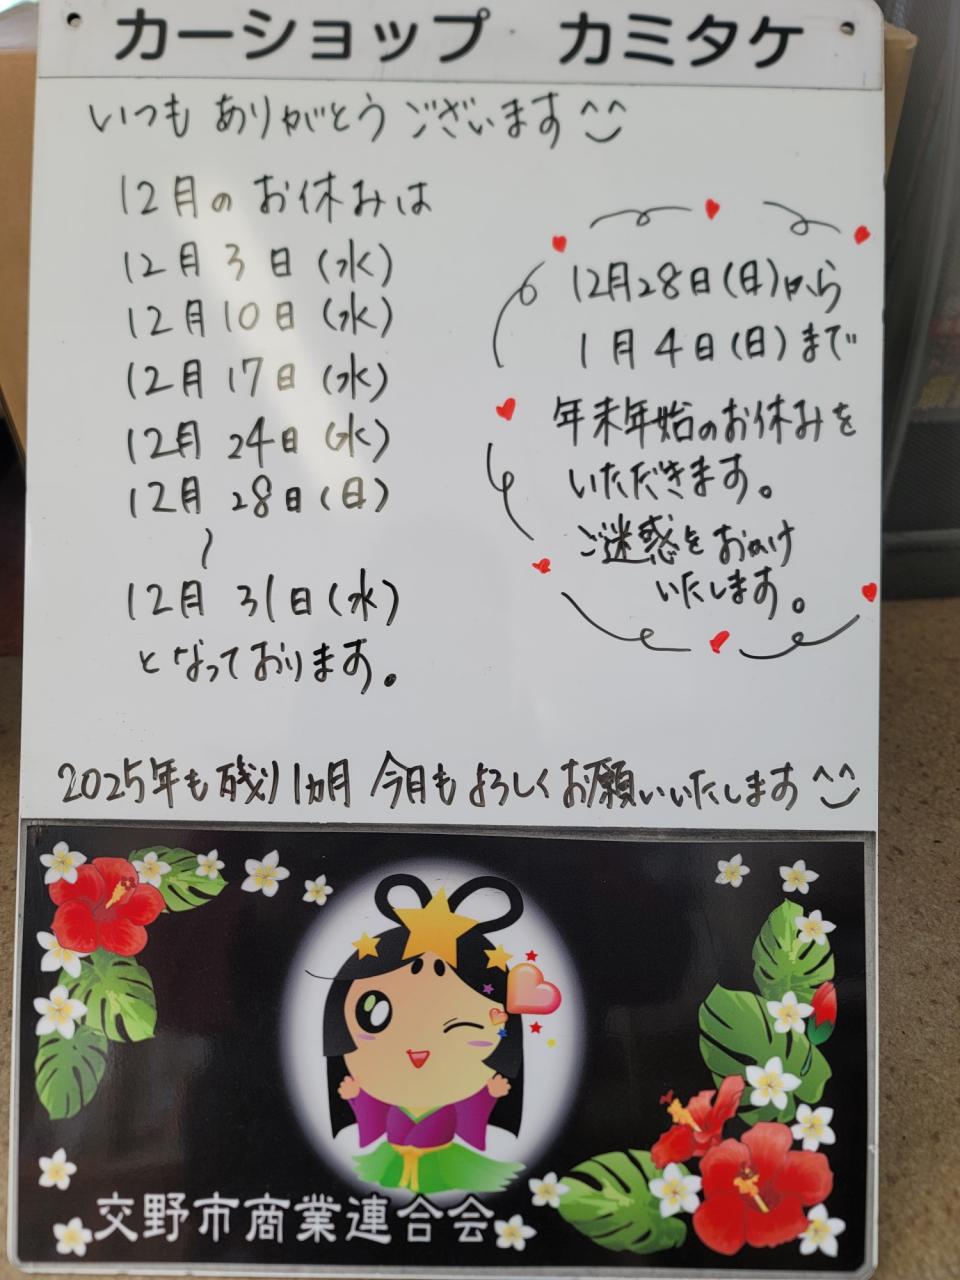 カーショップ カミタケ
いつも ありがとう ございます^^
12月の お休みは
12月 3日 (水)
12月 10日 (水)
12月 17日 (水)
12月 24日 (水)
12月 28日 (日)
〜
12月 31日 (水)
となっております。
12月28日(日)から
1月4日(日)まで
年末年始のお休みを
いただきます。
ご迷惑を おかけ
いたします。
2025年も 残り 1ヵ月 今月も よろしく お願いいたします^^
交野市商業連合会